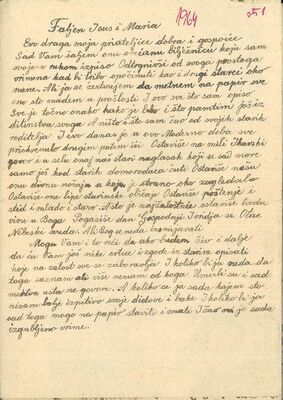 1964
Faljen Isus i Maria
Evo draga moja prijateljice dobra i gospoće
Sad Vam šaljem onu obećanu bilježnicu koju sam
svojom rukom ispiso Odtrgnivši od svoga postoga
vrimena kad bi tribo spočinuti kao i drugi starci oko
mene. Ali ja se žrtvujem da metnem na papir sve
ono što znadem u prošlosti I ovo sve što sam ispiso
Sve je točno onako kako je bilo i što pamtim još iz
ditinstva svoga I ništo što sam čuo od svojih starih
roditelja I evo danas je u ovo Moderno doba sve
priokrenuto drugim putem iši Ostaviše na mili Ikavski
govor i u selu onaj naš stari naglasak koji se sad more
samo još kod starih domorodaca čuti Ostaviše našu
onu divnu nošnju u kojoj je
Ostaviše one lipe starinske običaje Ostaviše poštenje i
stid i mlado i staro A što je najžalostnije ostaviše tvrdu
viru u Boga Pogaziše dan Gospodnji Ivridja se Otac
Nebeski svuda. Ali Bog se neda izsmijavati
Mogu Vam i to reći da ako budem živ i dalje
da ću Vam još nike crtice izgode iz davnina opisati
koje na žalost sve se zaboravlja I koliko bi ja rada da
toga saznam ali više nemam od koga Umrli su i sad
mrtva usta ne govore. A koliko se ja sada kajem što
nisam bolje ispitivo svoje didove i bake I koliko bi ja
sad toga mogo na papir stavit i znati I žao mi je sada
izgubljeno vrime.